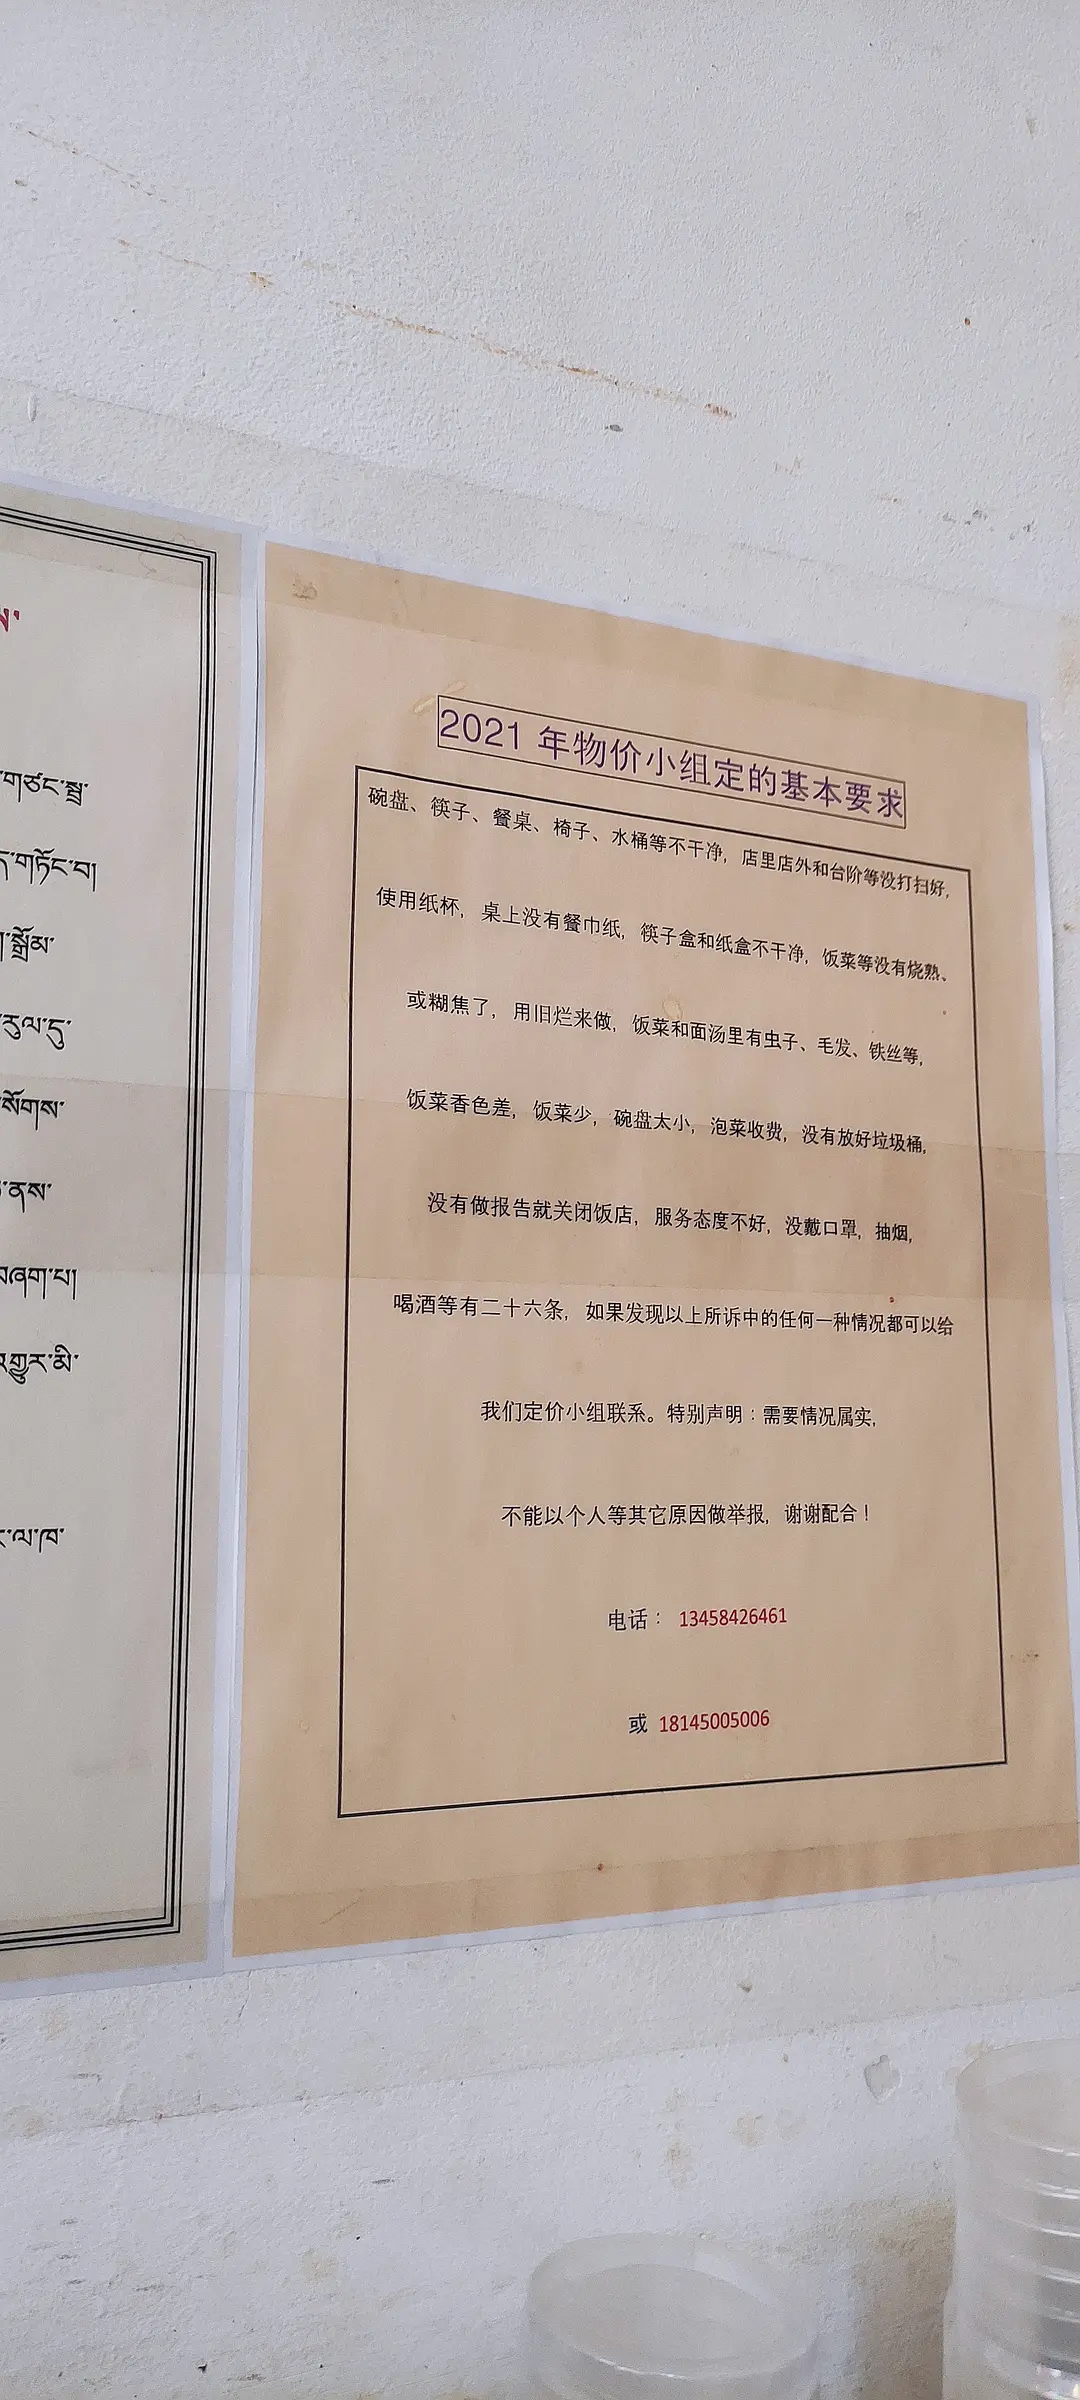 གཙང་སྦྲ་
གཏོང་བ།
སྒྲོམ་
རུལ་དུ་
སོགས་
ནས་
བཞག་པ།
འགྱུར་མི་
ང་ལ་ཁ་
2021 年物价小组定的基本要求
碗盘、筷子、餐桌、椅子、水桶等不干净，店里店外和台阶等没打扫好，
使用纸杯，桌上没有餐巾纸，筷子盒和纸盒不干净，饭菜等没有烧熟、
或糊焦了，用旧烂来做，饭菜和面汤里有虫子、毛发、铁丝等，
饭菜香色差，饭菜少，碗盘太小，泡菜收费，没有放好垃圾桶，
没有做报告就关闭饭店，服务态度不好，没戴口罩，抽烟，
喝酒等有二十六条，如果发现以上所诉中的任何一种情况都可以给
我们定价小组联系。特别声明：需要情况属实，
不能以个人等其它原因做举报，谢谢配合！
电话： 13458426461
或 18145005006